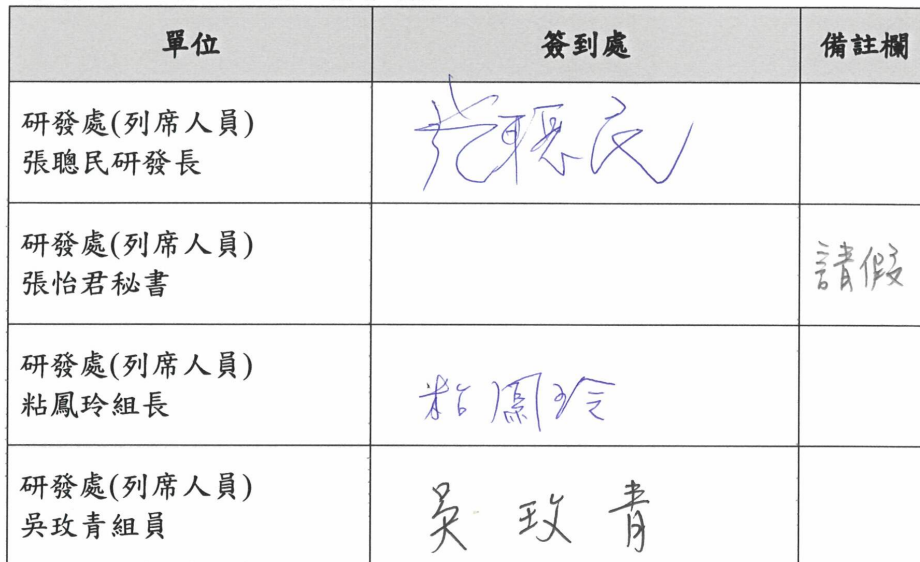 單位 簽到處 備註欄
研發處(列席人員)
張聰民研發長
張聰民
研發處(列席人員)
張怡君秘書
請假
研發處(列席人員)
粘鳳玲組長
粘鳳玲
研發處(列席人員)
吳玫青組員
吳玫青